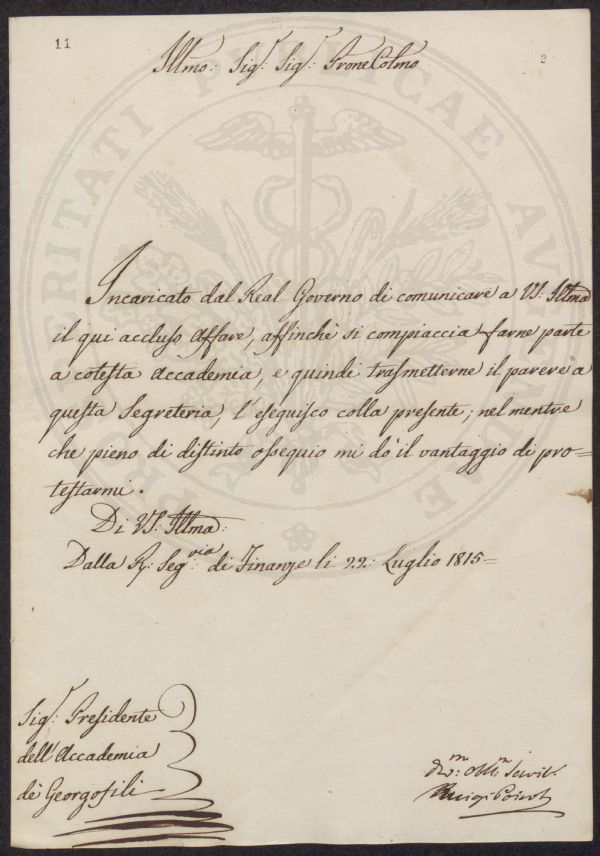 11
2
Illmo: Sig.r Sig.r Prone Colmo
Incaricato dal Real Governo di comunicare a VS: Illma
il qui accluso affare, affinchè si compiaccia farne parte
a cotesta Accademia, e quindi trasmetterne il parere a
questa Segreteria, l'eseguisco colla presente; nel mentre
che pieno di distinto ossequio mi dò il vantaggio di pro=
testarmi.
Di VS: Illma:
Dalla R: Seg:ria di Finanze li 22: Luglio 1815=
Sig.r Presidente
dell'Accademia
dè Georgofili
Dev:m Obb:m Servit.
Luigi
PROSPERITATI PUBLICAE AUGENDAE